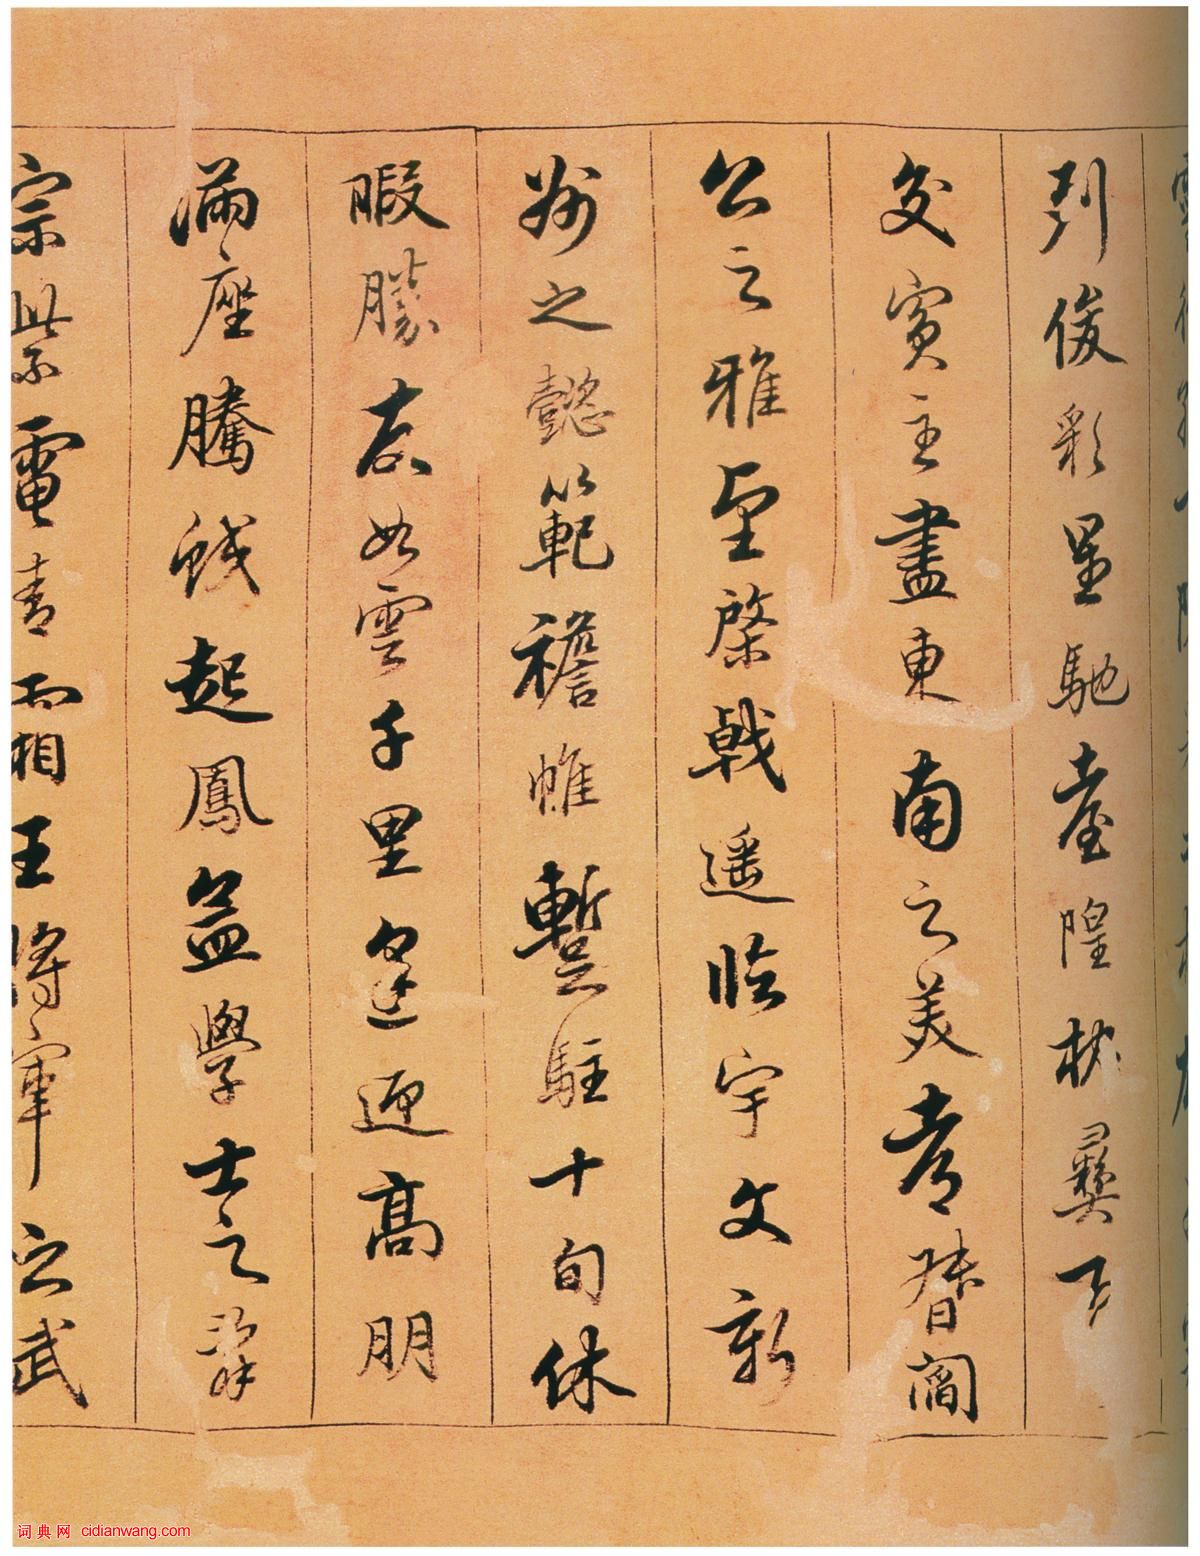 列俊彩星馳臺隍枕彝下
交賓主盡東南之美都督閻
公之雅望棨戟遥臨宇文新
州之懿範襜帷暫駐十旬休
暇勝友如雲千里逢迎高朋
滿座騰蛟起鳳孟學士之
宗紫電青霜王將軍之武
词典网 cidianwang.com